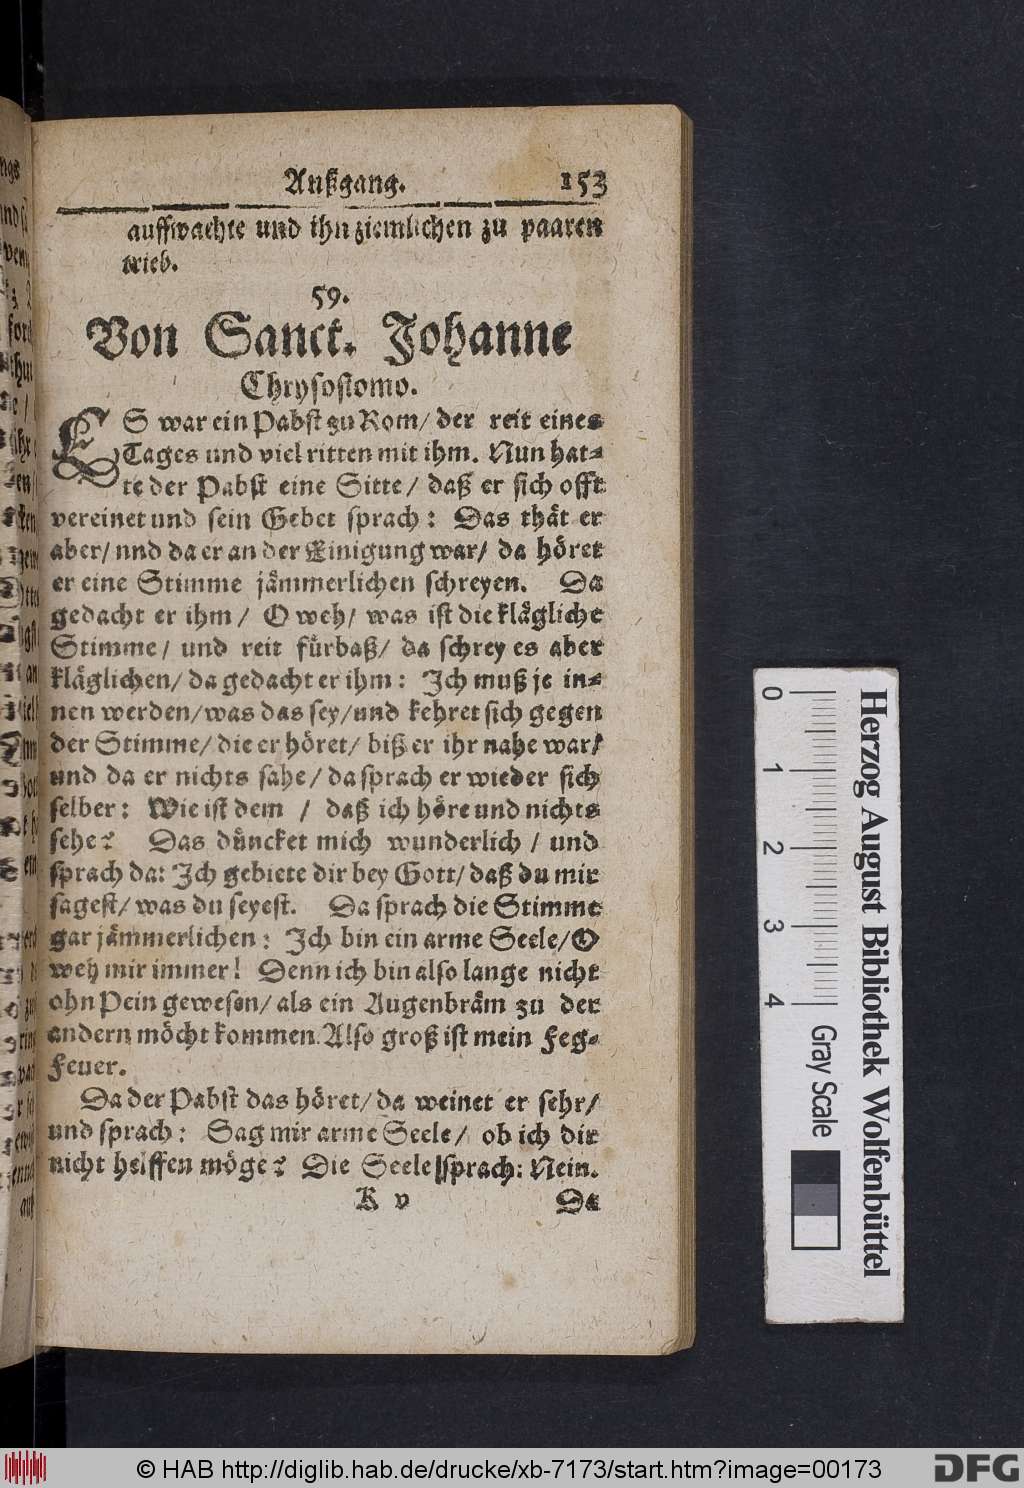 Außgang. 153
auffwachte und ihn ziemlichen zu paaren
trieb.
59.
Von Sanct. Johanne
Chrysostomo.
ES war ein Pabst zu Rom/ der reit eines
Tages und viel ritten mit ihm. Nun hat-
te der Pabst eine Sitte/ daß er sich offt
vereinet und sein Gebet sprach: Das thät er
aber/ nnd da er an der Einigung war/ da höret
er eine Stimme jämmerlichen schreyen. Da
gedacht er ihm/ O weh/ was ist die klägliche
Stimme/ und reit fürbaß/ da schrey es aber
kläglichen/ da gedacht er ihm: Ich muß je in-
nen werden/ was das sey/ und kehret sich gegen
der Stimme/ die er höret/ biß er ihr nahe war/
und da er nichts sahe/ da sprach er wieder sich
selber: Wie ist dem / daß ich höre und nichts
sehe? Das düncket mich wunderlich / und
sprach da: Ich gebiete dir bey Gott/ daß du mir
sagest/ was du seyest. Da sprach die Stimme
gar jämmerlichen: Ich bin ein arme Seele/ O
weh mir immer! Denn ich bin also lange nicht
ohn Pein gewesen/ als ein Augenbräm zu der
andern möcht kommen. Also groß ist mein Feg-
Feuer.
Da der Pabst das höret/ da weinet er sehr/
und sprach: Sag mir arme Seele/ ob ich dir
nicht helffen möge? Die Seele sprach: Nein.
K v Da
Herzog August Bibliothek Wolfenbüttel
0 1 2 3 4 Gray Scale
© HAB http://diglib.hab.de/drucke/xb-7173/start.htm?image=00173
DFG